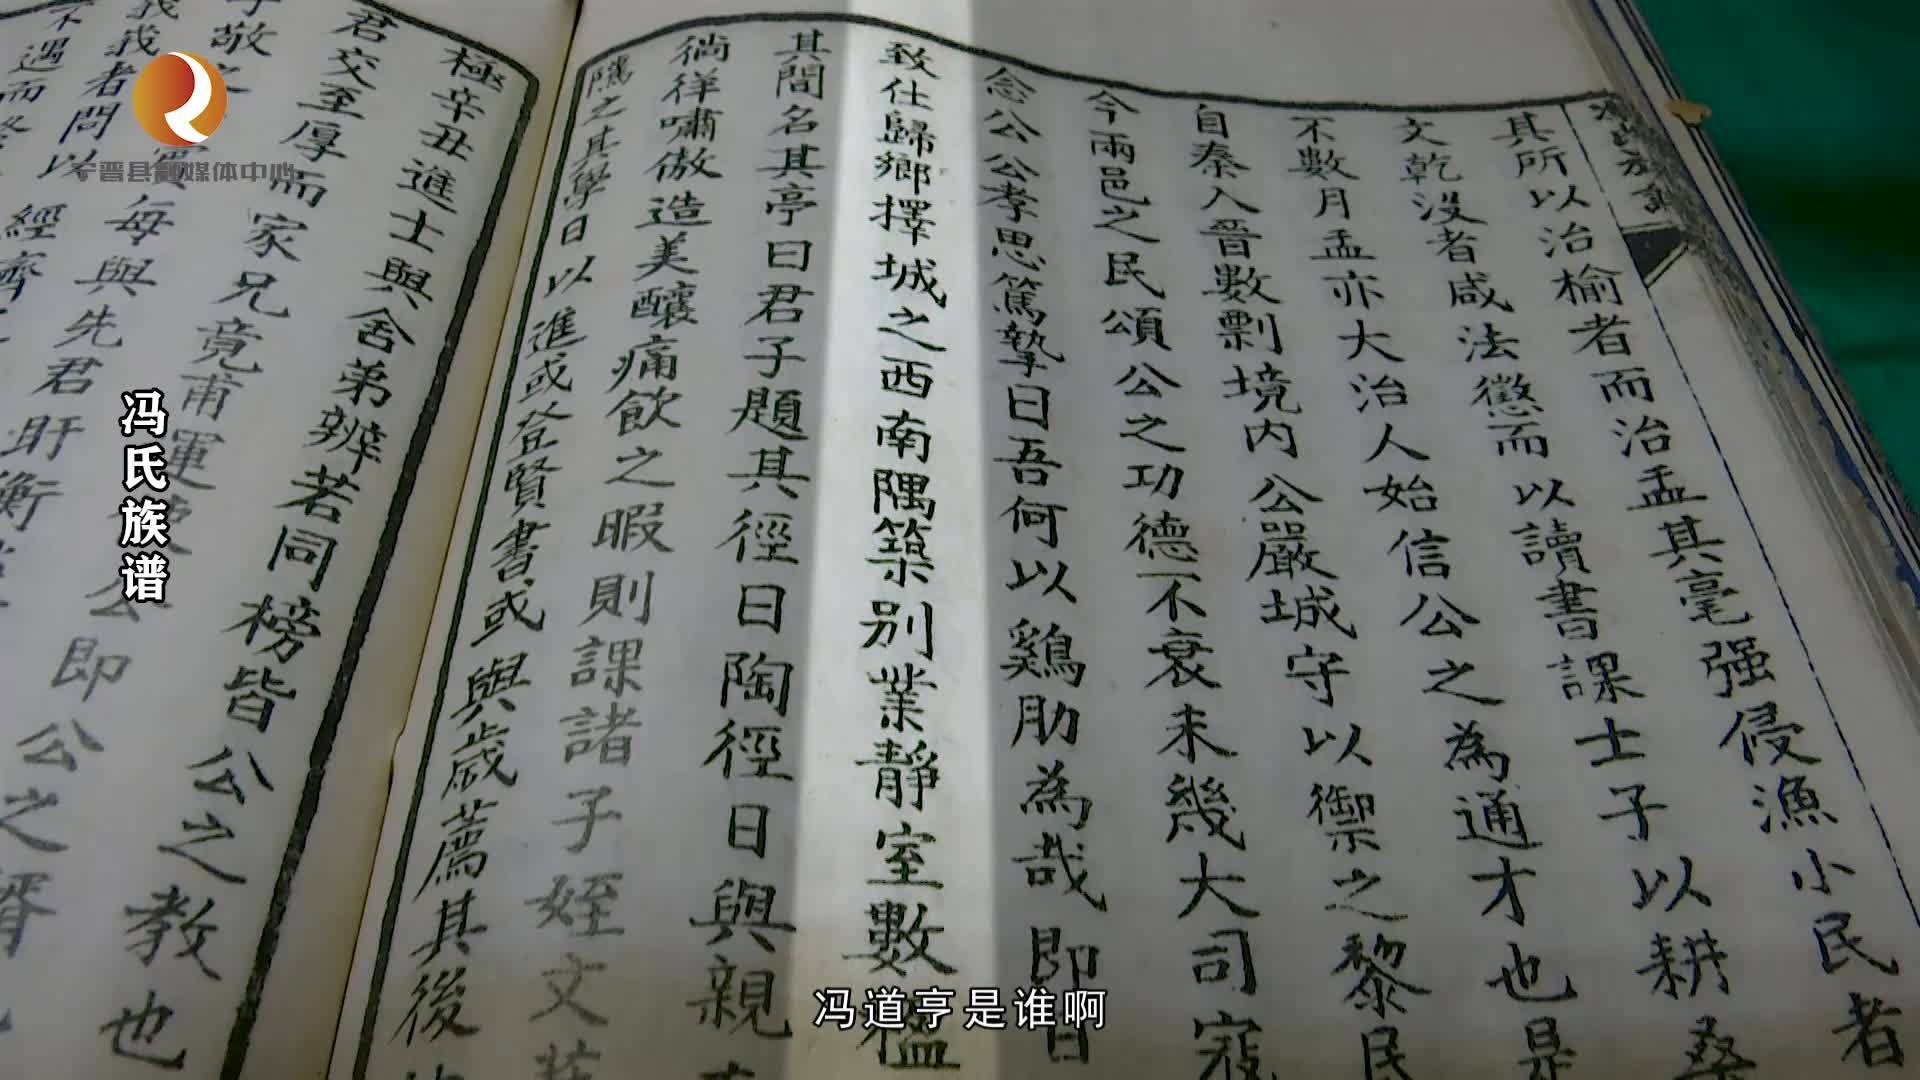 宁晋县融媒体中心
冯氏族谱
其所以治榆者而治盂其毫强侵漁小民者
文乾没者咸法懲而以讀書課士子以耕桑
不數月盂亦大治人始信公之為通才也是
自秦入晉數剽境内公嚴城守以禦之黎民
今兩邑之民頌公之功德不衰未幾大司寇
念公公孝思篤摯曰吾何以鷄肋為哉即日
致仕歸鄉擇城之西南隅築别業靜室數楹
其間名其亭曰君子題其徑曰陶徑日與親
徜徉嘯傲造美釀痛飲之暇則課諸子姪文藝
隲之其學日以進或登賢書或與歲薦其後
極辛丑進士與舍弟辨若同榜皆公之教也
君交至厚而家兄竟甫運
公即公之壻
每與先君盱衡
我者問以經濟
不遇而
冯道亨是谁啊